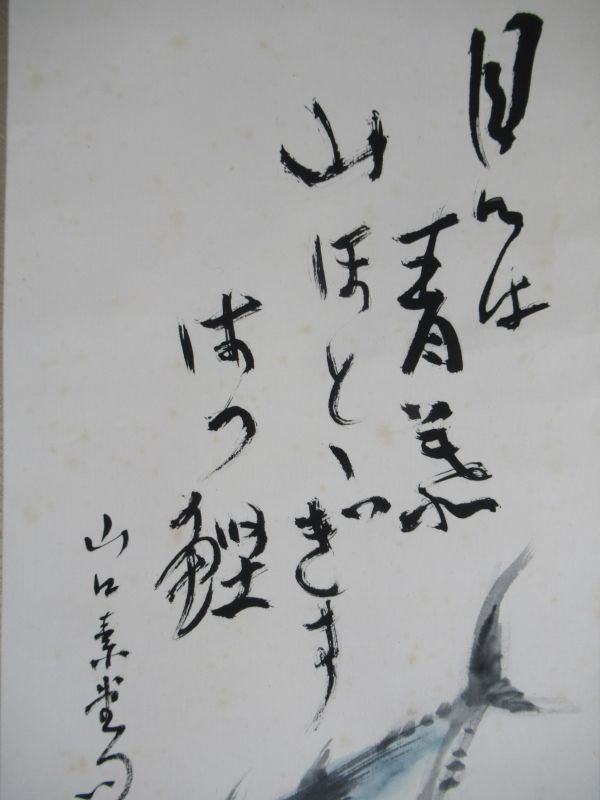 目には
青葉
山ほとゝぎす
はつ鰹
山口素堂句